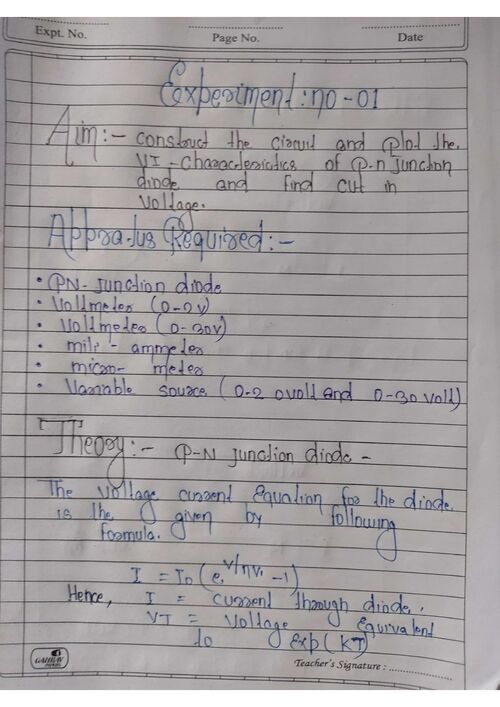 Expt. No.
Page No.
Date
Experiment: no - 01
Aim:- construct the circuit and plot the
VI - characteristics of p-n junction
diode and find cut in
voltage.
Appratus Required:-
• PN- junction diode
• Voltmeter (0-2v)
• Voltmeter (0-30v)
• mili - ammeter
• micro- meter
• Variable source (0-2 0volt and 0-30 volt)
Theory:- P-N junction diode -
The voltage current equation for the diode
is the given by following
formula.
I = I0 (e,V/ηVT -1)
Hence, I = current through diode,
VT = voltage equivalent
to exp (KT)
GAURAV
Teacher's Signature :